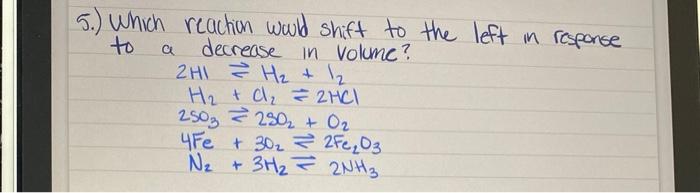 5.) Which reaction would shift to the left in response
to a decrease in volume?
2HI ⇌ H₂ + I₂
H₂ + Cl₂ ⇌ 2HCl
2SO₃ ⇌ 2SO₂ + O₂
4Fe + 3O₂ ⇌ 2Fe₂O₃
N₂ + 3H₂ ⇌ 2NH₃